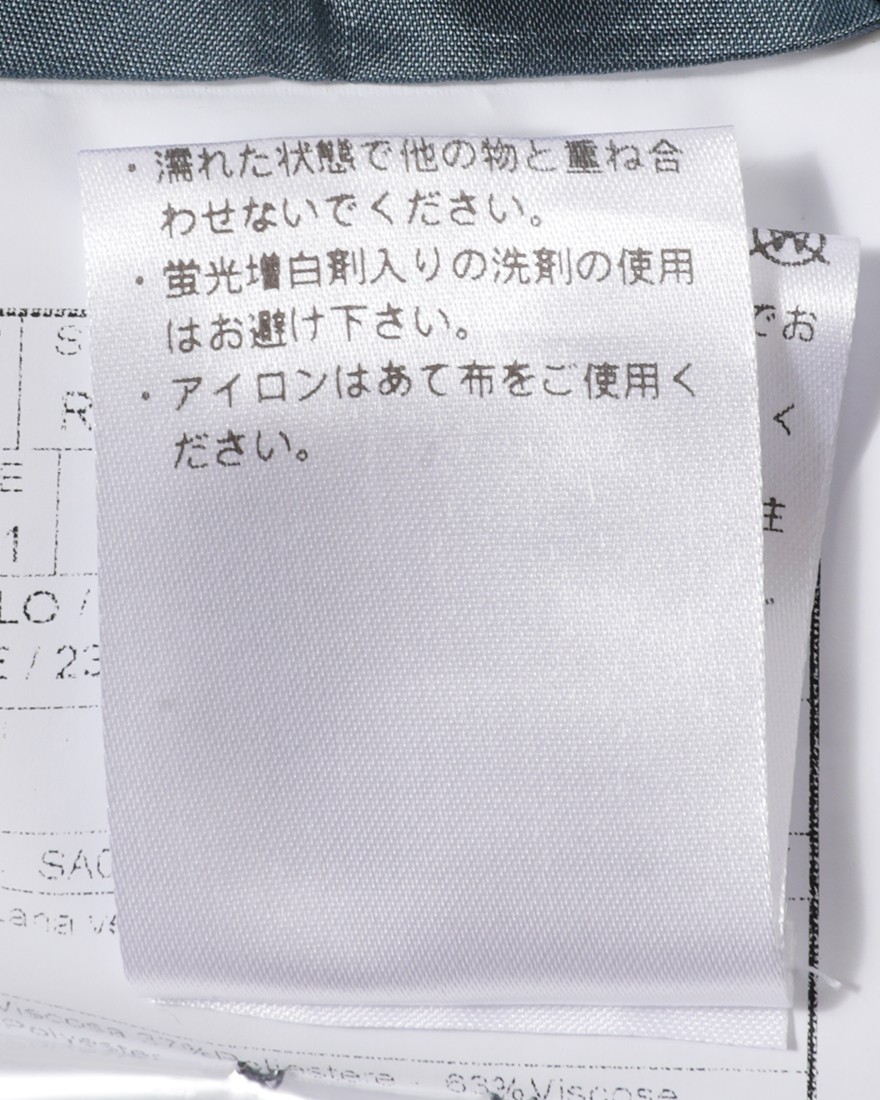 ・濡れた状態で他の物と重ね合
わせないでください。
・蛍光増白剤入りの洗剤の使用
はお避け下さい。
・アイロンはあて布をご使用く
ださい。
でお
く
S
R
E
1
LO /
E / 23
SAC
63%Viscose